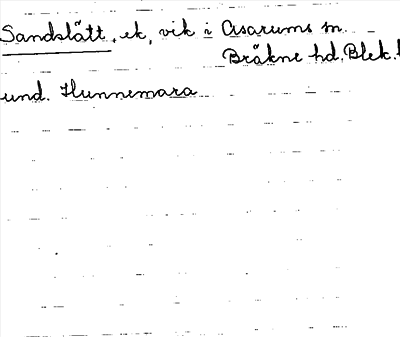 Sandslätt, ek, vik i Asarums sn.
Bräkne hd. Blek. l
und. Hunnemara